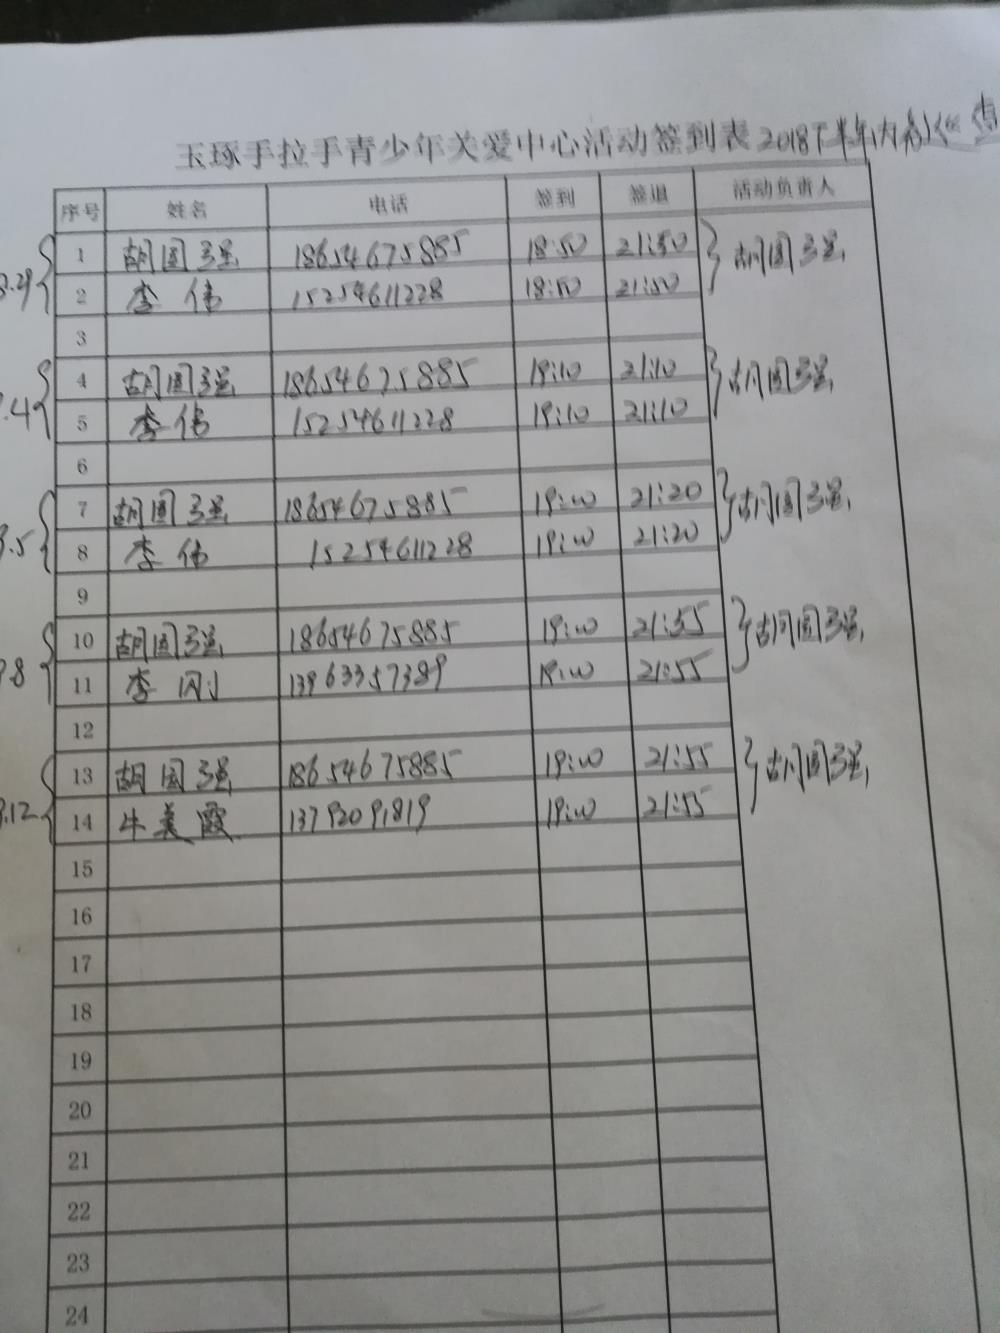 玉琢手拉手青少年关爱中心活动签到表 2018下半年
序号 姓名 电话 签到 签退 活动负责人
1 胡国强 18654675885 18:50 21:50 胡国强
2 李伟 15254611228 18:50 21:50
3
4 胡国强 18654675885 19:10 21:10 胡国强
.4
5 李伟 15254611228 19:10 21:10
6
7 胡国强 18654675885 19:00 21:20 胡国强
.5
8 李伟 15254611228 19:00 21:20
9
10 胡国强 18654675885 19:00 21:55 胡国强
.8
11 李刚 13963357389 19:00 21:55
12
13 胡国强 18654675885 19:00 21:55 胡国强
.12
14 牛美霞 13792091819 19:00 21:55
15
16
17
18
19
20
21
22
23
24